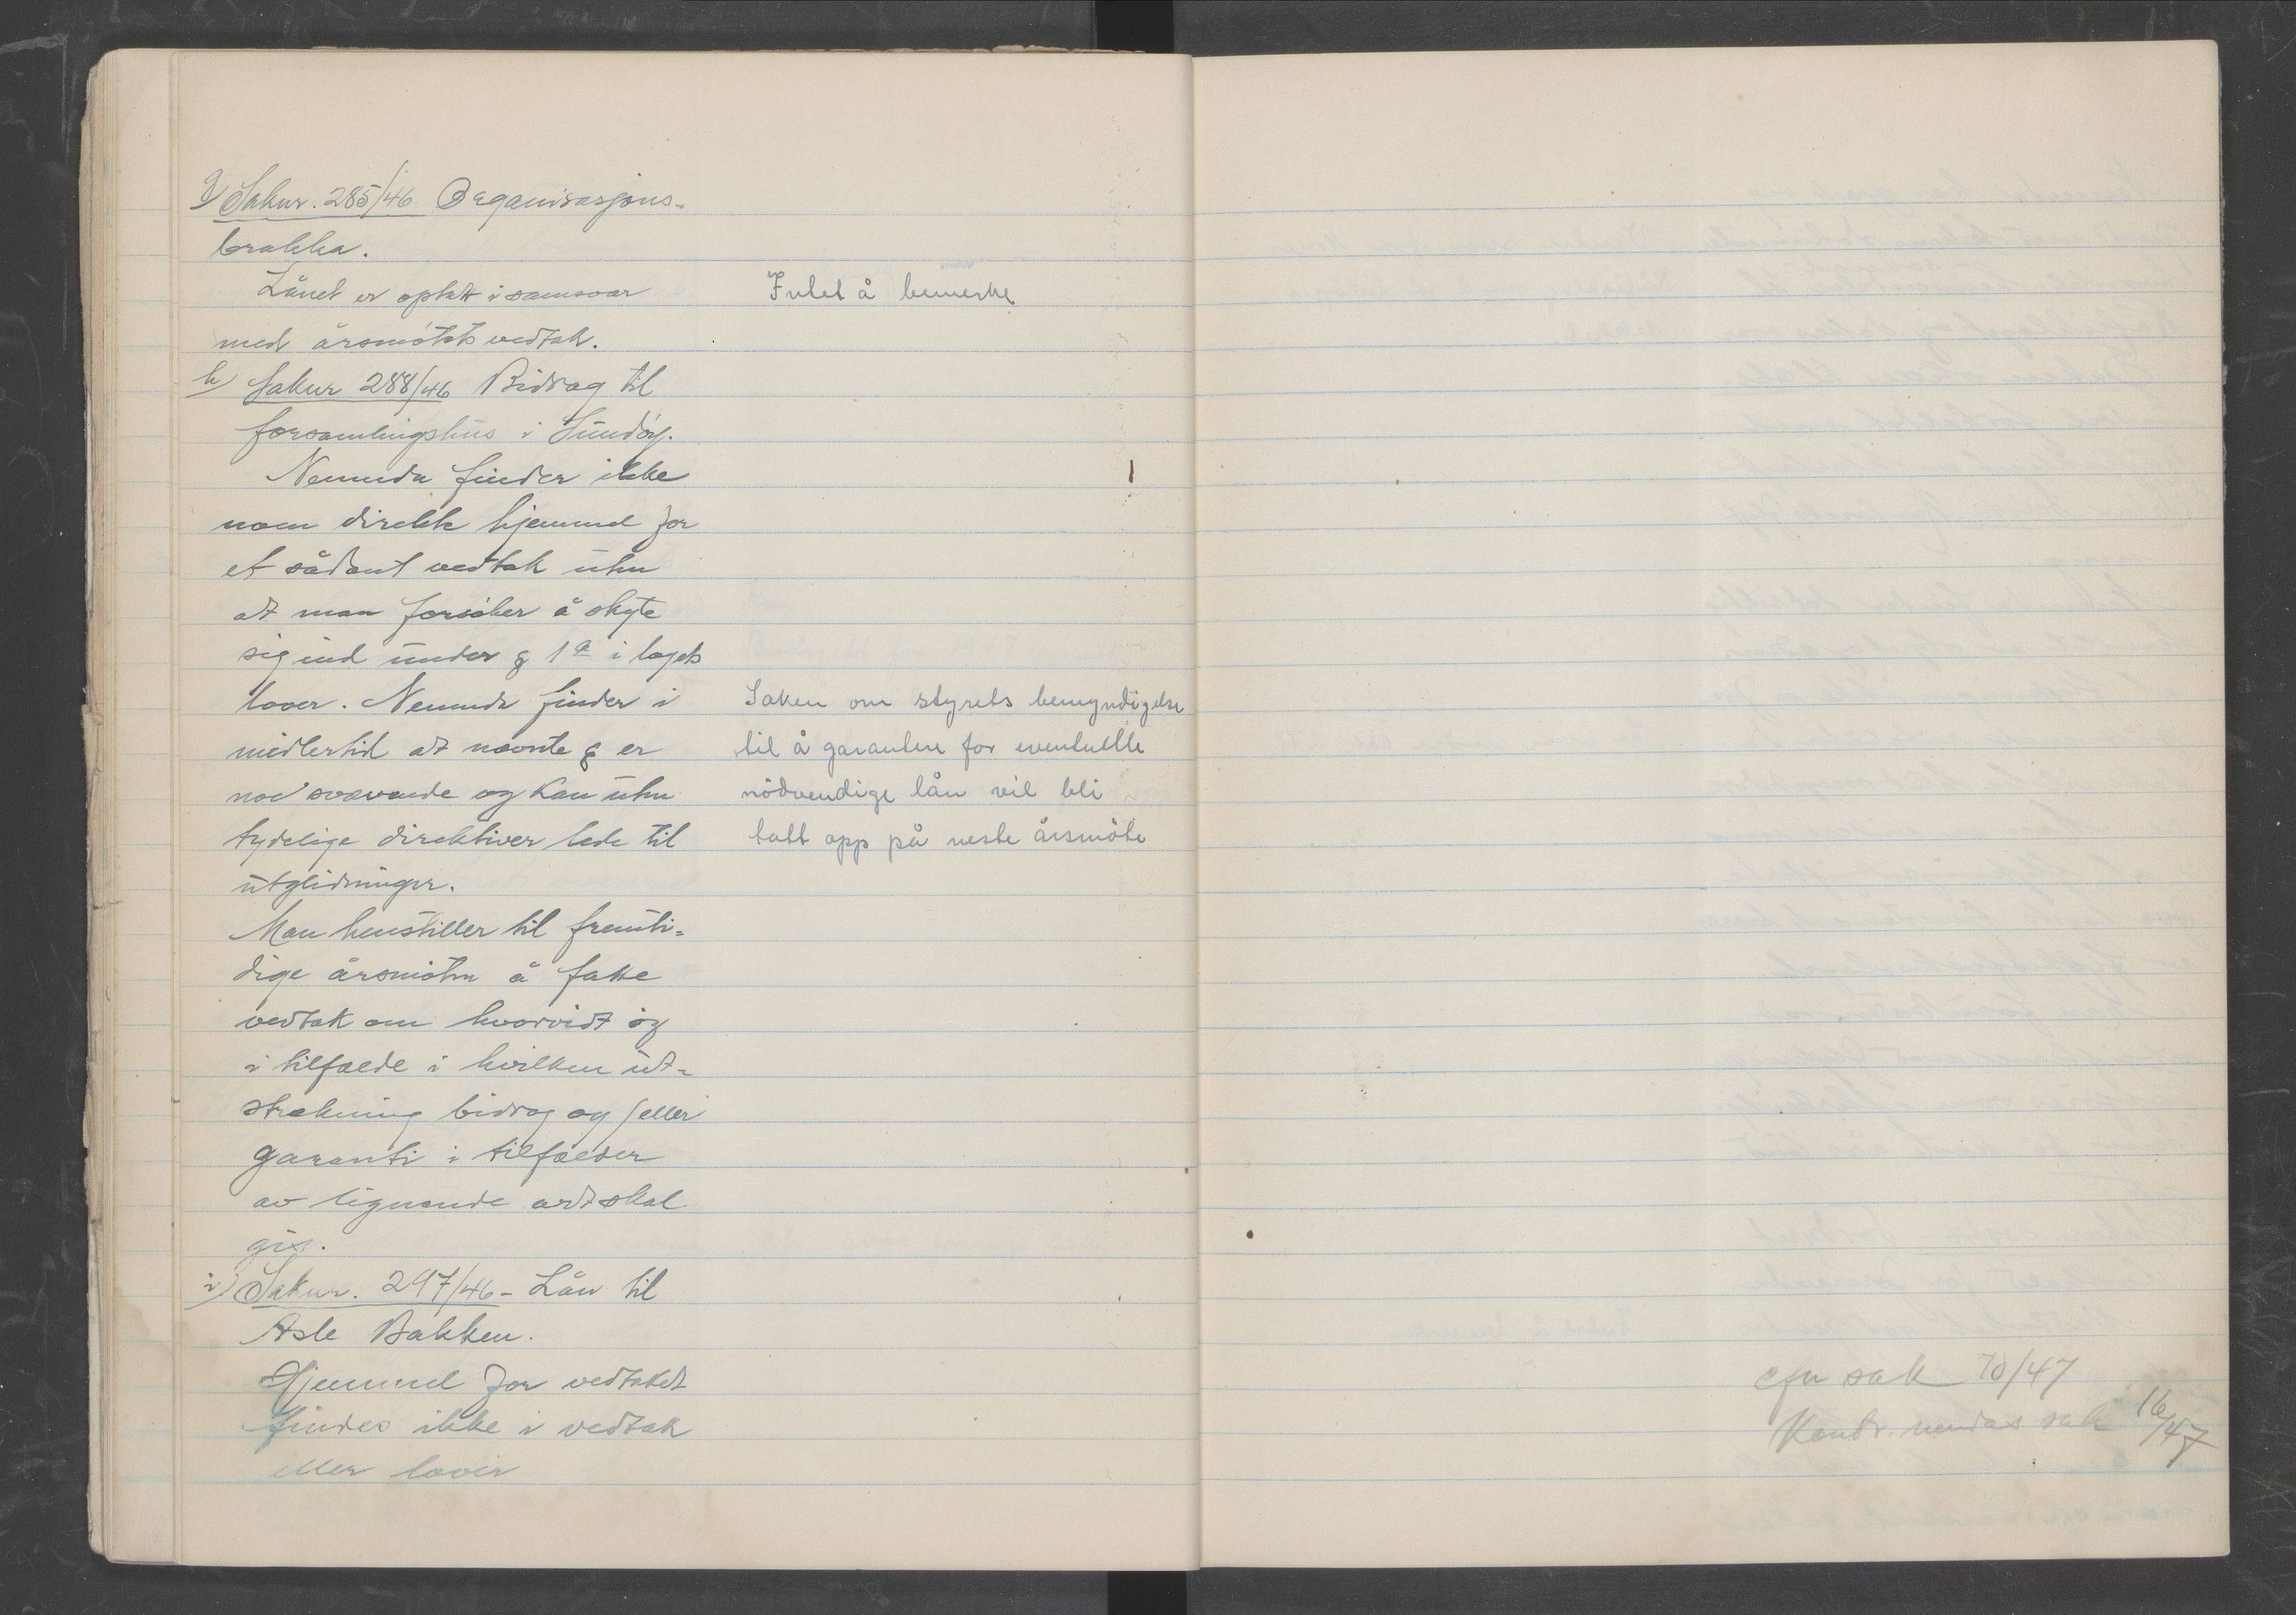 g) Saknr. 285/46 Organisasjons-
brakka.
Lånet er optatt i samsvar
med årsmøtets vedtak.
h) Saknr 288/46 Bidrag til
forsamlingshus i Sundøy.
Nemnda finder ikke
noen direkte hjemmel for
et sådant vedtak uten
at man forsøker å skyte
sig ind under § 1a i lagets
lover. Nemnda finder i
midlertid at nævnte § er
noe svævende og kan uten
tydelige direktiver lede til
utglidninger.
Man henstiller til fremti-
dige årsmøter å fatte
vedtak om hvorvidt og
i tilfælde i hvilken ut-
strekning bidrag og/eller
garanti i tilfælder
av lignende art skal
gis.
i) Saknr. 297/46 - Lån til
Asle Bakken.
Hjemmel for vedtaket
findes ikke i vedtak
eller lover
Intet å bemerke
Saken om styrets bemyndigelse
til å garantere for eventuelle
nödvendige lån vil bli
tatt opp på neste årsmöte
cfr sak 70/47
Kontr. nemdas sak 16/47